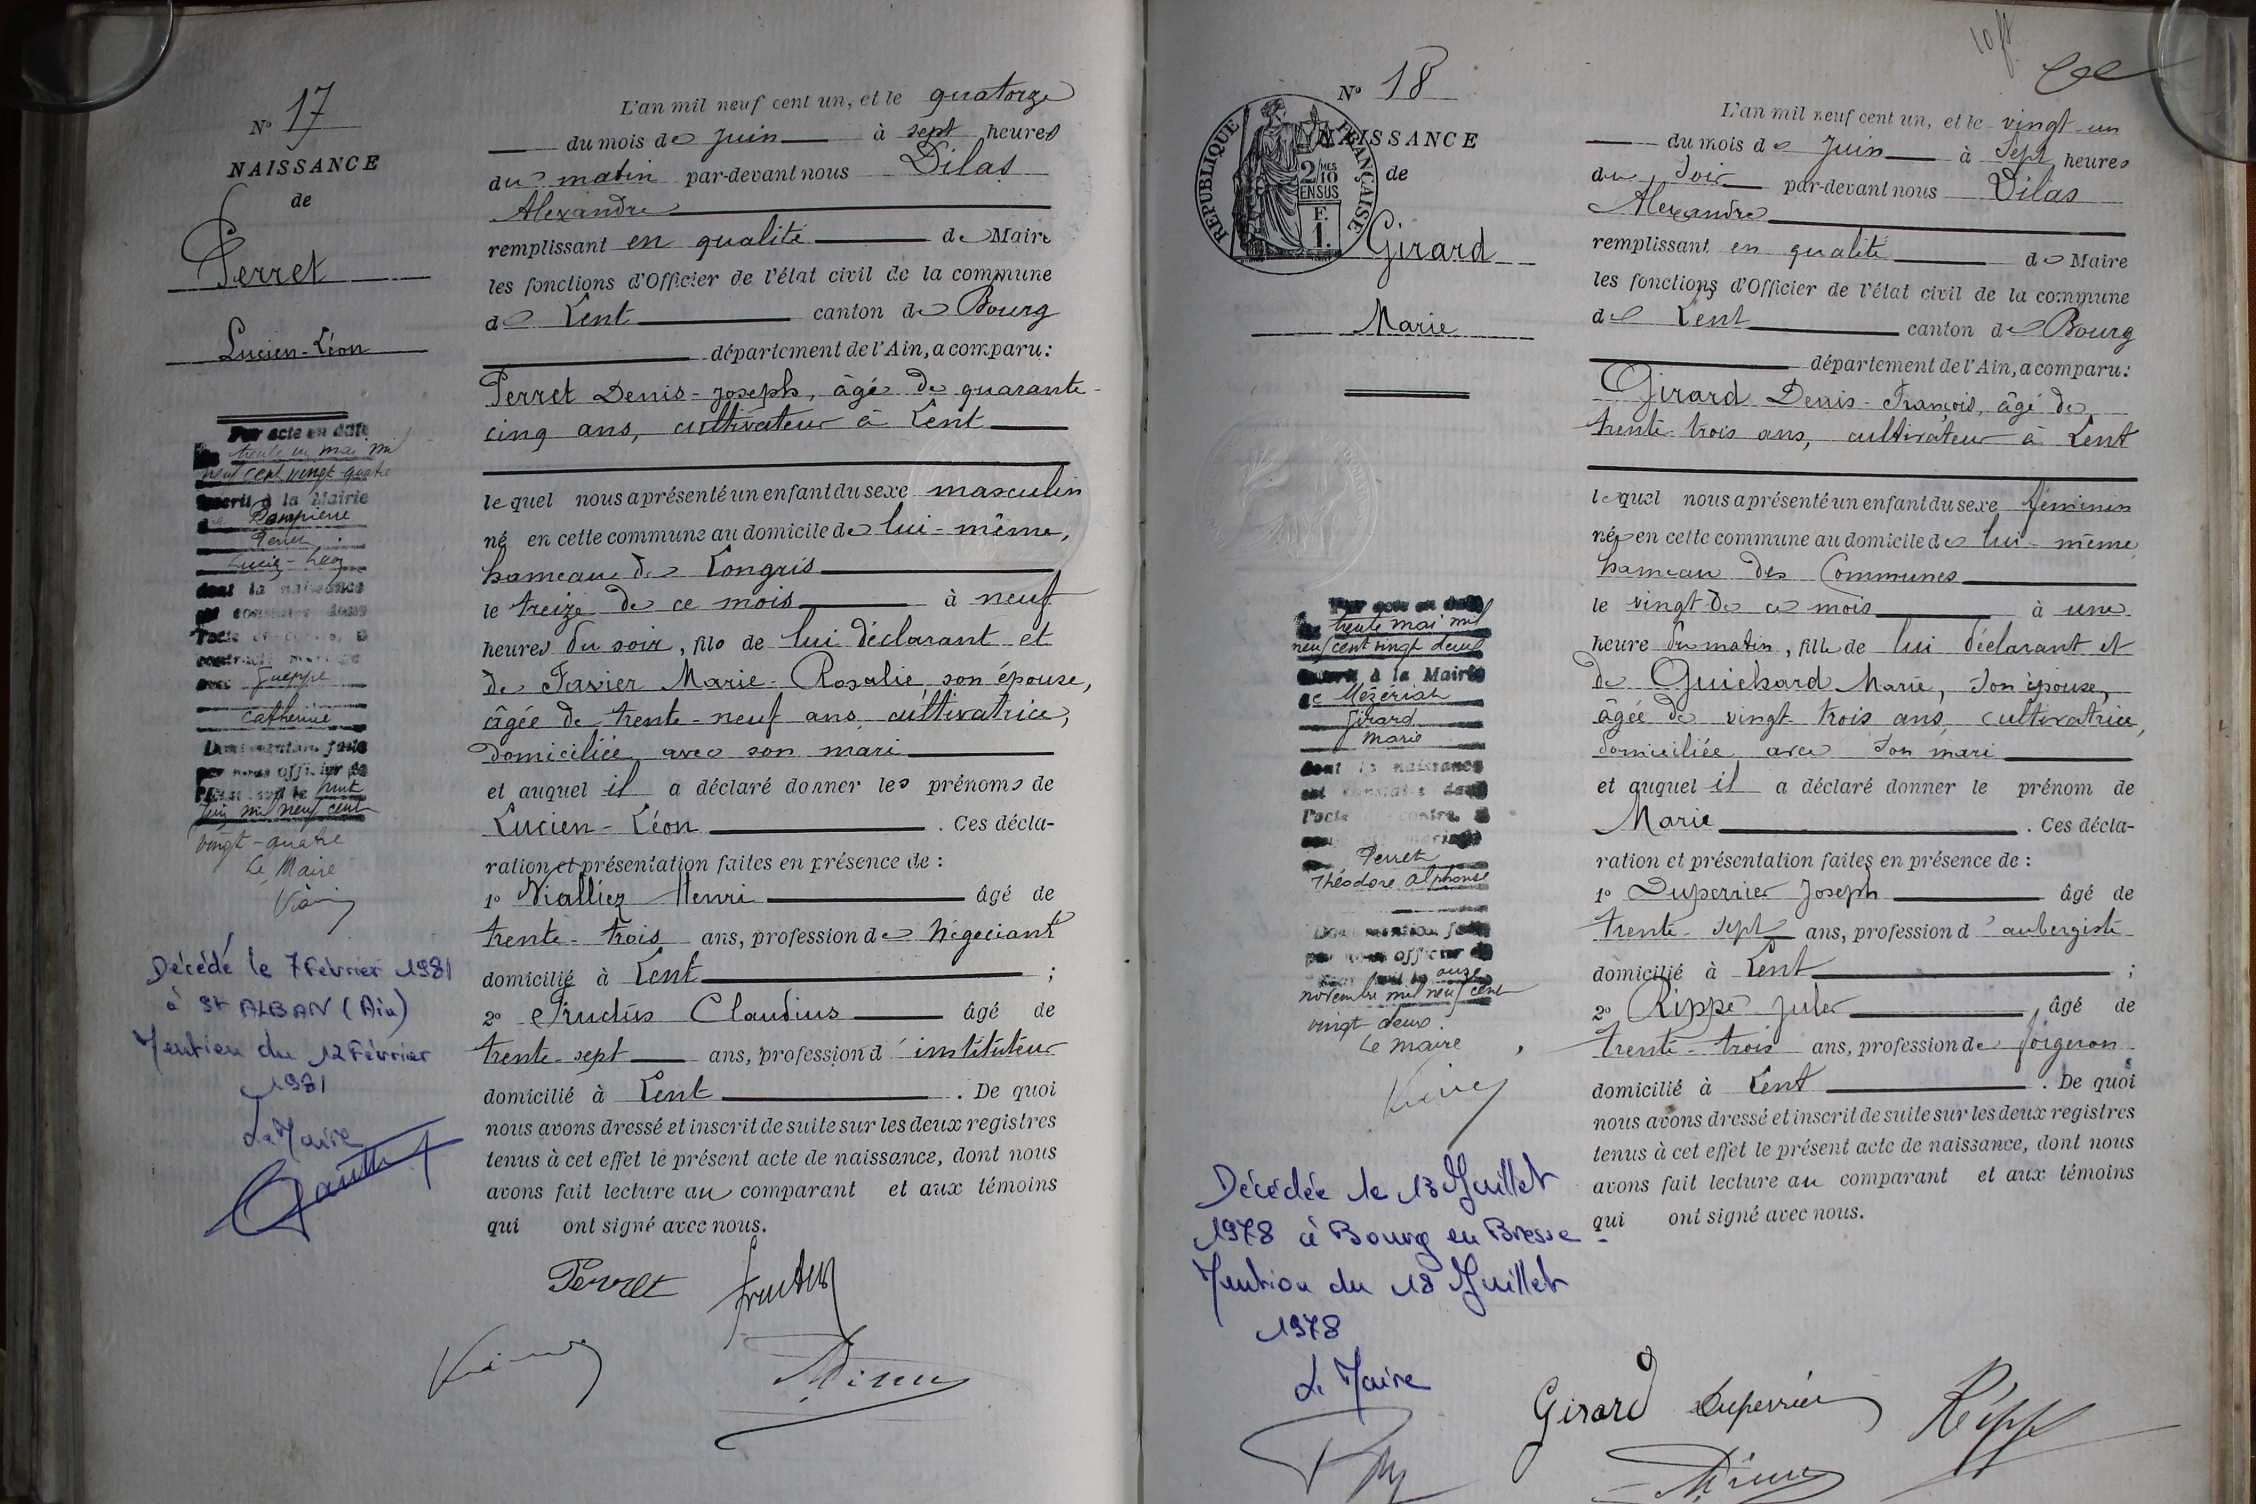 N° 17
NAISSANCE
de
Perret
Lucien-Léon
Par acte en date
trente un mai mil
neuf cent vingt-quatre
inscrit à la Mairie
de Dompierre
Perret
Lucien-Léon
dont la naissance
est constatée dans
l'acte ci-contre, a
contracté mariage
avec Gueppe
Catherine
Dont mention faite
par nous officier de
l'état civil le huit
juin mil neuf cent
vingt-quatre
Le Maire
Décédé le 7 Février 1981
à St ALBAN (Ain)
Mention du 12 Février
1981
Le Maire
L'an mil neuf cent un, et le quatorze
du mois de Juin à sept heures
du matin par-devant nous Dilas
Alexandre
remplissant en qualité de Maire
les fonctions d'Officier de l'état civil de la commune
de Lent canton de Bourg
département de l'Ain, a comparu:
Perret Denis-Joseph, âgé de quarante-
cinq ans, cultivateur à Lent
lequel nous a présenté un enfant du sexe masculin
né en cette commune au domicile de lui-même,
hameau de Longris
le treize de ce mois à neuf
heures du soir, fils de lui déclarant et
de Favier Marie-Rosalie, son épouse,
âgée de trente-neuf ans, cultivatrice,
domiciliée avec son mari
et auquel il a déclaré donner les prénoms de
Lucien-Léon . Ces décla-
ration et présentation faites en présence de :
1° Viallier Henri âgé de
trente-trois ans, profession de Négociant
domicilié à Lent ;
2° Fructus Claudius âgé de
trente-sept ans, profession d'instituteur
domicilié à Lent . De quoi
nous avons dressé et inscrit de suite sur les deux registres
tenus à cet effet le présent acte de naissance, dont nous
avons fait lecture au comparant et aux témoins
qui ont signé avec nous.
Perret Fructus
N° 18
NAISSANCE
de
RÉPUBLIQUE FRANÇAISE
2/10 MES
EN SUS
F.
1.
Girard
Marie
Par acte en date
trente mai mil
neuf cent vingt deux
inscrit à la Mairie
de Mézériat
Girard
Marie
dont la naissance
est constatée dans
l'acte ci-contre, a
contracté mariage
Perret
Théodore Alphonse
Dont mention faite
par nous officier de
l'état civil le onze
novembre mil neuf cent
vingt deux.
Le Maire
Décédée le 13 Juillet
1978 à Bourg en Bresse
Mention du 18 Juillet
1978
Le Maire
L'an mil neuf cent un, et le vingt-un
du mois de Juin à Sept heures
du Soir par-devant nous Dilas
Alexandre
remplissant en qualité de Maire
les fonctions d'Officier de l'état civil de la commune
de Lent canton de Bourg
département de l'Ain, a comparu:
Girard Denis-François, âgé de
trente-trois ans, cultivateur à Lent
lequel nous a présenté un enfant du sexe féminin
née en cette commune au domicile de lui-même
hameau des Communes
le vingt de ce mois à une
heure du matin, fille de lui déclarant et
de Guichard Marie, son épouse,
âgée de vingt-trois ans, cultivatrice,
domiciliée avec son mari
et auquel il a déclaré donner le prénom de
Marie . Ces décla-
ration et présentation faites en présence de :
1° Duperrier Joseph âgé de
trente-sept ans, profession d'aubergiste
domicilié à Lent ;
2° Rippe Jules âgé de
trente-trois ans, profession de forgeron
domicilié à Lent . De quoi
nous avons dressé et inscrit de suite sur les deux registres
tenus à cet effet le présent acte de naissance, dont nous
avons fait lecture au comparant et aux témoins
qui ont signé avec nous.
Girard Duperrier Rippe